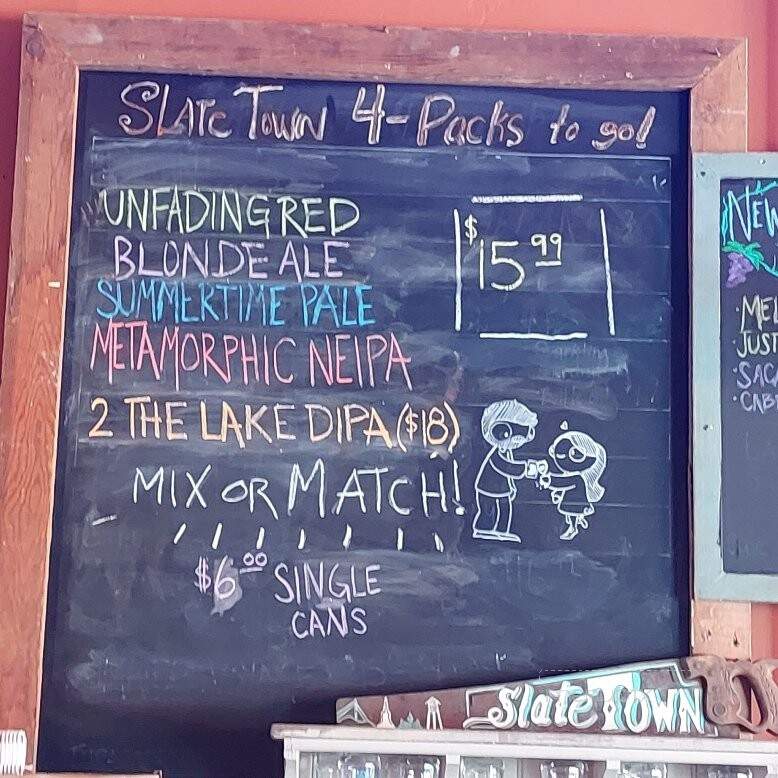 SLATE TOWN 4-PACKS to go!
UNFADING RED
BLONDE ALE
SUMMERTIME PALE
METAMORPHIC NEIPA
$15.99
2 THE LAKE DIPA ($18)
MIX OR MATCH!
$6.00 SINGLE
CANS
Slate TOWN
NEW
JUST